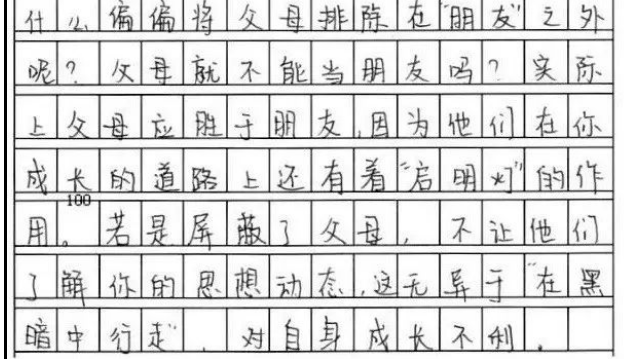 什么偏偏将父母排除在"朋友"之外
呢？父母就不能当朋友吗？实际
上父母应胜于朋友，因为他们在你
成长的道路上还有着"启明灯"的作
100
用。若是屏蔽了父母，不让他们
了解你的思想动态，这无异于"在黑
暗中行走"，对自身成长不利。